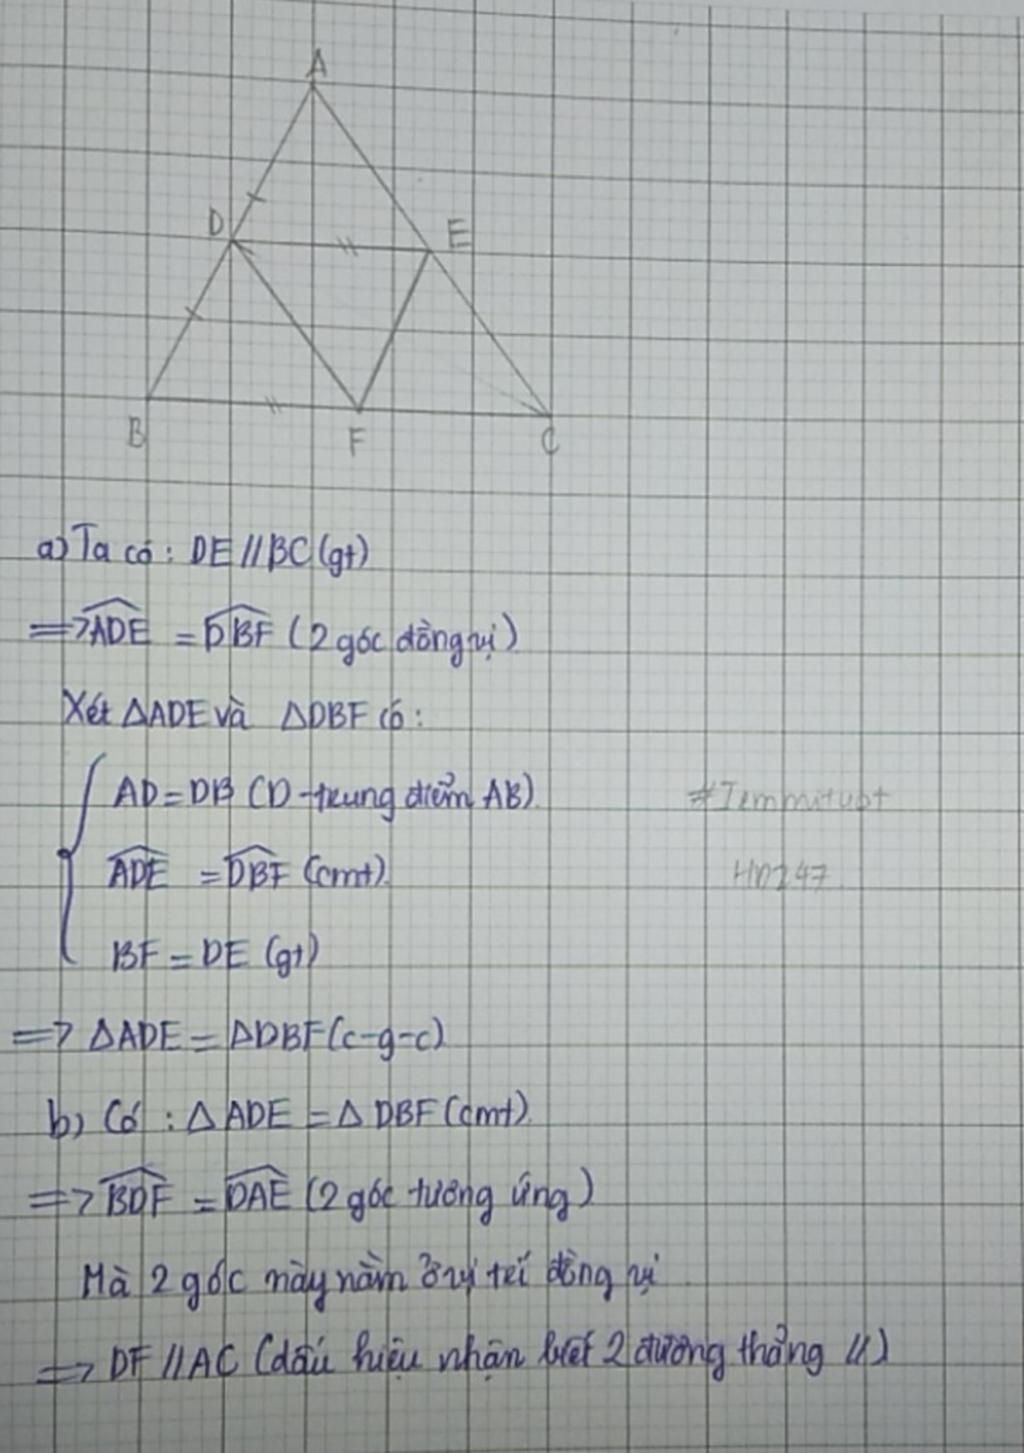 A
D
E
B
F
C
a) Ta có : DE // BC (gt)
=> ADE = DBF ( 2 góc đồng vị )
Xét ΔADE và ΔDBF có :
AD = DB (D - trung điểm AB)
#Temmitupt
ADE = DBF (cmt)
HD247
BF = DE (gt)
=> ΔADE = ΔDBF (c-g-c)
b) Có : Δ ADE = Δ DBF (cmt)
=> BDF = DAE (2 góc tương ứng )
Mà 2 góc này nằm ở vị trí đồng vị
=> DF // AC (dấu hiệu nhận biết 2 đường thẳng //)